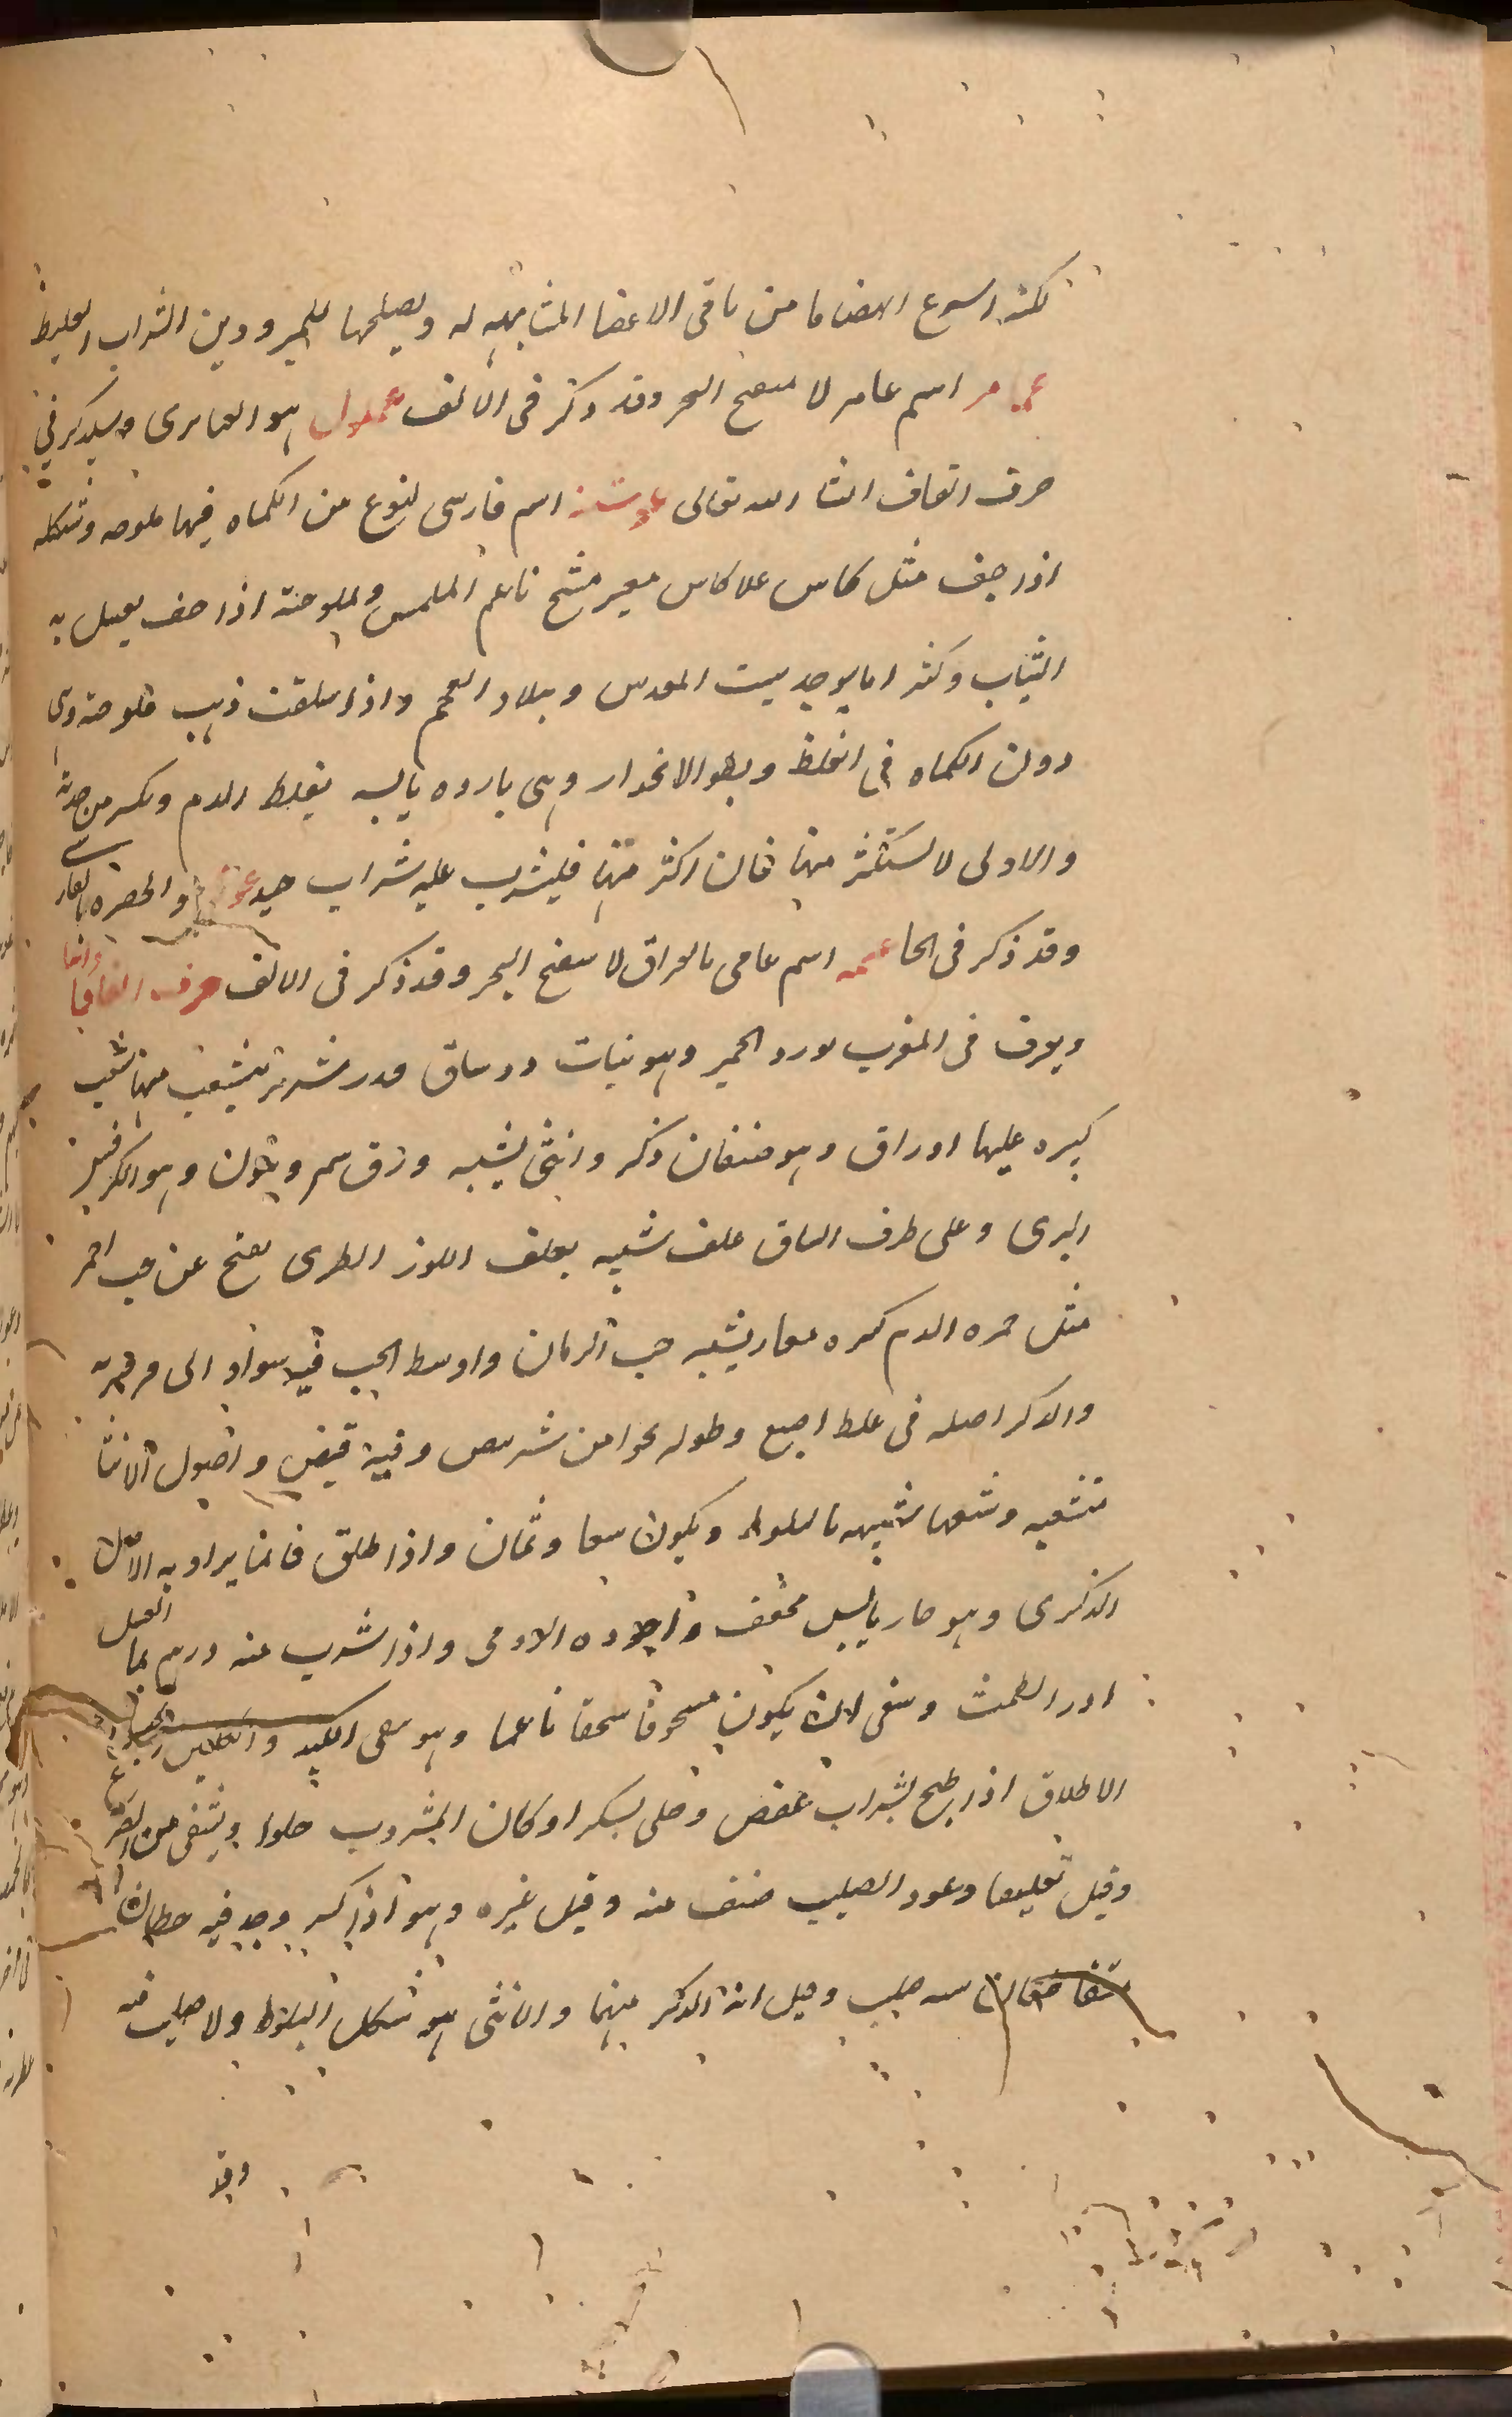 لكنه اسرع انهضاما من باقى الاعضا المشابهه له ويصلحها للمبرودين الشراب الغليظ
اسم عامر لا سفنج البحر وقد ذكر فى الالف هو العامرى وسيذكر فى
حرف القاف انشا الله تعالى اسم فارسى لنوع من الكماه فيها ملوحه وشكله
اذا جف مثل كاس على كاس صغير متشنج ناعم الملمس ولملوحته اذا جف يغسل به
الثياب وكثيرا ما يوجد ببيت المقدس وببلاد العجم واذا سلقت ذهب ملوحته وهى
دون الكماه فى الغلظ وبطو الانحدار وهى بارده يابسه يغلظ الدم وتكسر من حدته
والاولى لا يستكثر منها فان اكثر منها فليشرب عليه شراب جيد
وقد ذكر فى الحا اسم عامى بالعراق لا سفنج البحر وقد ذكر فى الالف حرف الفا
ويعرف فى المغرب بورد الحمير وهو نبات دو ساق قدر شبر تتشعب منها شعب
كبيره عليها اوراق وهو صنفان ذكر وانثى يشبه ورق وهو الكرفس
البرى وعلى طرف الساق غلف شبيه بغلف اللوز الطرى يفتح عن حب احمر
مثل حمره الدم كثيره صغار يشبه حب الرمان واوسط الحب فيه سواد الى فرفيريه
والدكر اصله فى غلظ اصبع وطوله نحوا من شبر ابيض وفيه قبض واصول الانثا
متشعبه وشعبها شبيهه بالبلوط ويكون سبعا وثمان واذا اطلق فانما يراد به الاصل
الذكرى وهو حار يابس مجفف واجوده الرومى واذا شرب منه درهم بما العسل
ادر الطمث وينبغى لان يكون مسحوقا سحقا ناعما وهو ينقى الكبد
الاطلاق اذا طبخ بشراب عفص وحلى بسكر او كان المشروب حلوا ويشفى من الصرع
وقيل تعليقا وعود الصليب صنف منه وقيل غيره وهو اذا كسر وجد فيه خطان
متقاطعان شبه صليب وقيل انه الدكر منهما والانثى هو شكل البلوط ولا صليب فيه
وقد